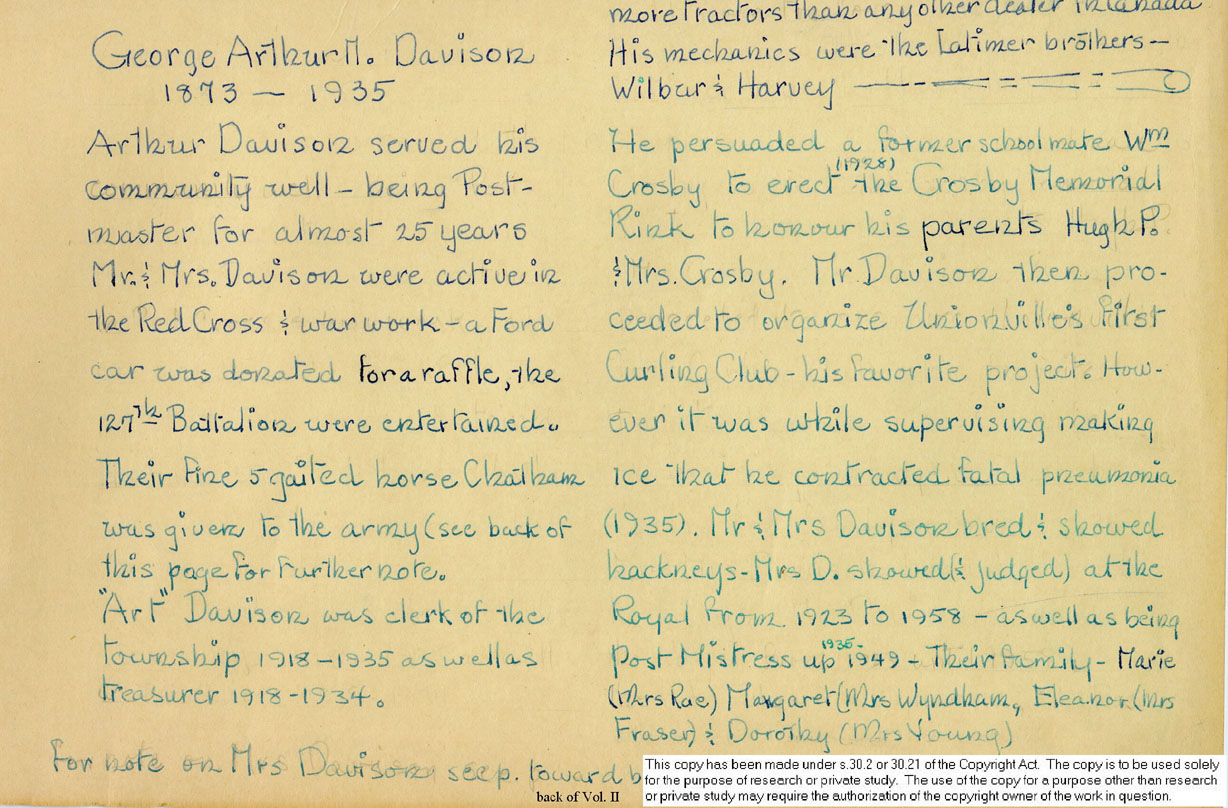 George Arthur M. Davison
1873 — 1935
Arthur Davison served his
community well – being Post-
master for almost 25 years
Mr. & Mrs. Davison were active in
the Red Cross & war work – a Ford
car was donated for a raffle, the
127th Battalion were entertained.
Their fine 5 gaited horse Chatham
was given to the army (see back of
this page for further note.
"Art" Davison was clerk of the
township 1918 – 1935 as well as
treasurer 1918 - 1934.
more tractors than any other dealer in Canada
His mechanics were the Latimer brothers –
Wilbur & Harvey
He persuaded a former school mate Wm
Crosby to erect (1928) the Crosby Memorial
Rink to honour his parents Hugh P.
& Mrs. Crosby. Mr. Davison then pro-
ceeded to organize Unionville's first
Curling Club – his favorite project. How-
ever it was while supervising making
ice that he contracted fatal pneumonia
(1935). Mr & Mrs Davison bred & showed
hackneys - Mrs D. showed (& judged) at the
Royal from 1923 to 1958 – as well as being
Post Mistress up 1935 - 1949 – Their family – Marie
(Mrs Rae) Margaret (Mrs Wyndham, Eleanor (Mrs
Fraser) & Dorothy (Mrs Young)
For note on Mrs Davison see p. toward b
back of Vol. II
This copy has been made under s.30.2 or 30.21 of the Copyright Act. The copy is to be used solely
for the purpose of research or private study. The use of the copy for a purpose other than research
or private study may require the authorization of the copyright owner of the work in question.